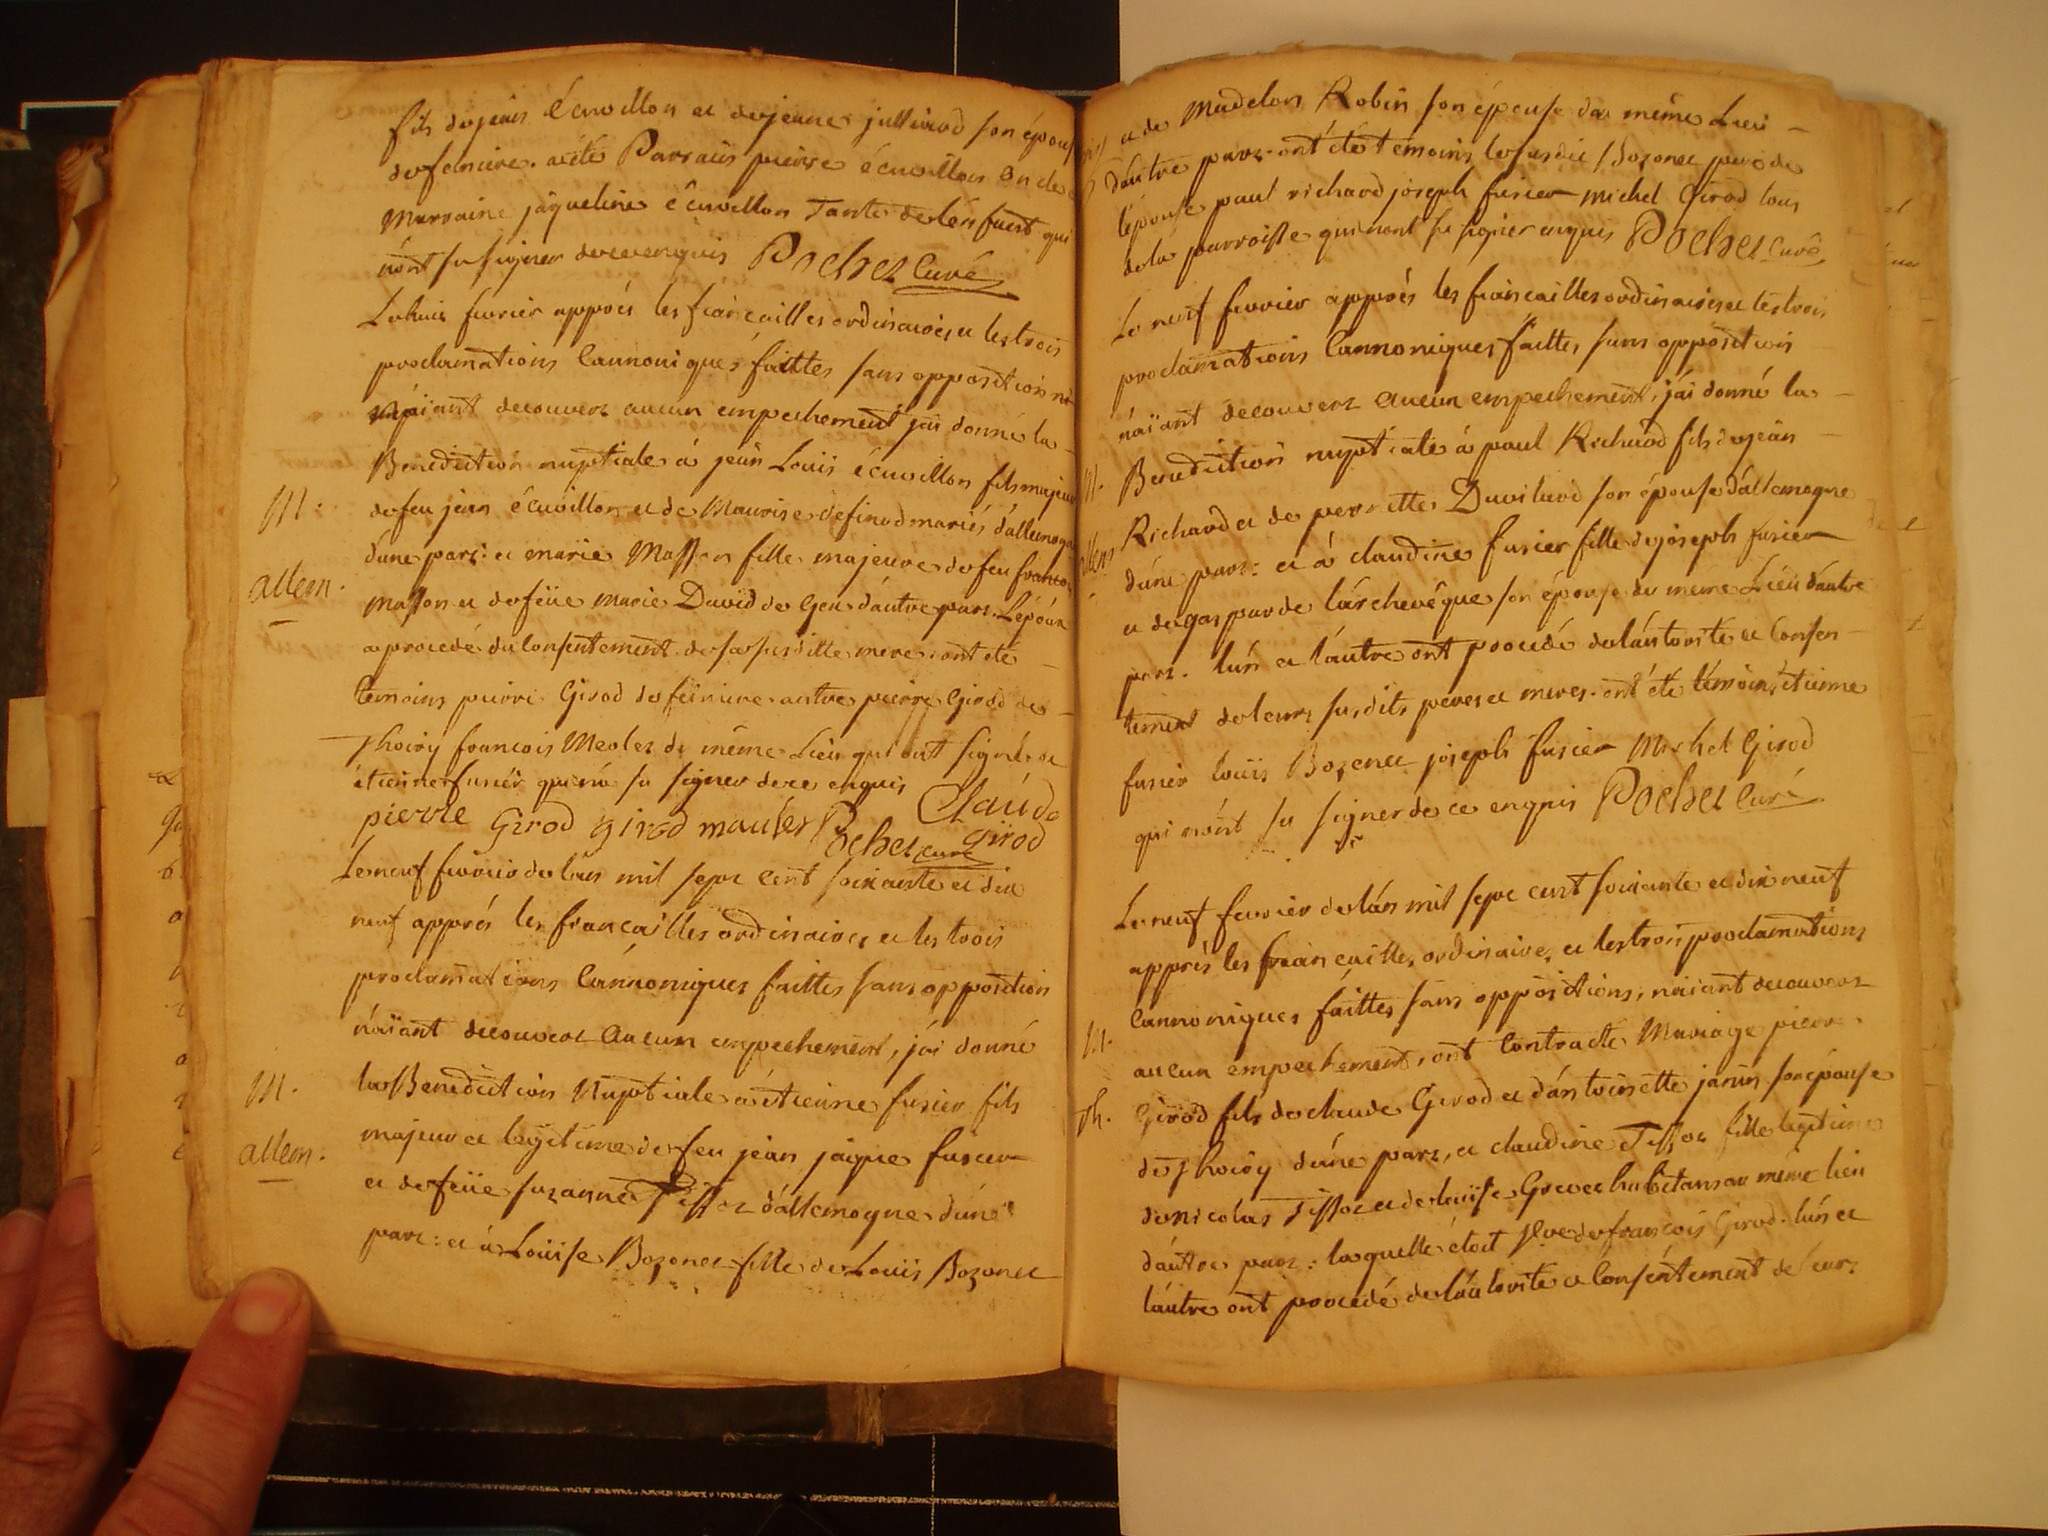 fils de jean écuvillon et de jeanne jullierod son épouse
de feniere. a été Parrain pierre écuvillon oncle
Marraine jaqueline écuvillon Tante de lénfant qui
nónt su signer de ce enquis Pochet Curé
Le huit fevrier apprés les fiancailles ordinaires et les trois
proclamations Cannoniques faittes sans opposition
náïant decouvert aucun empechement jái donné la
Benediction nuptiale á jean Louis écuvillon fils majeur
M.
de feu jean écuvillon et de Maurise définod mariés dállemogne
dúne part: et marie Masson fille majeure de feu francois
allem.
Masson et de feüe marie David de Gex dáutre part. Lépoux
a procedé du Consentement de sa susditte mere. ont été
temoins pierre Girod de feiniere autre pierre Girod de
Thoiry francois Meolez du même Lieu qui ont signés et
étienne fusier qui ná su signer de ce enquis
pierre Girod Girod mauler Pochet curé Claúde girod
Le neuf fevrier de lán mil sept cent soixante et dix
neuf apprés les francailles ordinaires et les trois
proclamations Cánnoniques faittes sans opposition
náïant decouvert aucun empechement, jái donné
M.
la Benediction Nuptiale á étienne fusier fils
majeur et legitime de feu jean jaique fusier
allem.
et de feüe suzanne Tissot dállemogne dúne
part: et á Loüise Bozonet fille de Loüis Bozonet
et de Madelon Robin son épouse du même Lieu
dáutre part. ont été témoins le susdit Bozonet pere de
lépouse paul richard joseph fusier michel Girod tous
de la parroisse qui nont su signer enquis Pochet Curé
Le neuf fevrier apprés les fiancailles ordinaires et les trois
proclamations Cannoniques faittes sans opposition
náïant decouvert aucun empechement, jái donné la
M.
Benediction nuptiale á paul Richard fils de jean
Richard et de pernette Duvilard son épouse dállemogne
allem
dúne part: et á claudine fusier fille de joseph fusier
et de gasparde lárchevêque son épouse du même Lieu dáutre
part. lún et láutre ont procedé de láutorité et Consen-
tement de leurs susdits peres et meres. ont été témoins étienne
fusier loüis Bozonet joseph fusier Michel Girod
qui nónt su signer de ce enquis Pochet Curé
Le neuf fevrier de lán mil sept cent soixante et dix neuf
apprés les fiancailles ordinaires et les trois proclamations
Cannoniques faittes sans oppositions, náïant decouvert
M.
aucun empechement, ont Contracté Mariage pierre
Th.
Girod fils de claude Girod et dántoinette janin son épouse
de Thoiry dúne part, et claudine Tissot fille legitime
de nicolas Tissot et de loüise Grevet habitans au même lieu
dáutre part: laquelle étoit veuve de francois Girod. lún et
láutre ont procedé de láutorité et Consentement de leurs